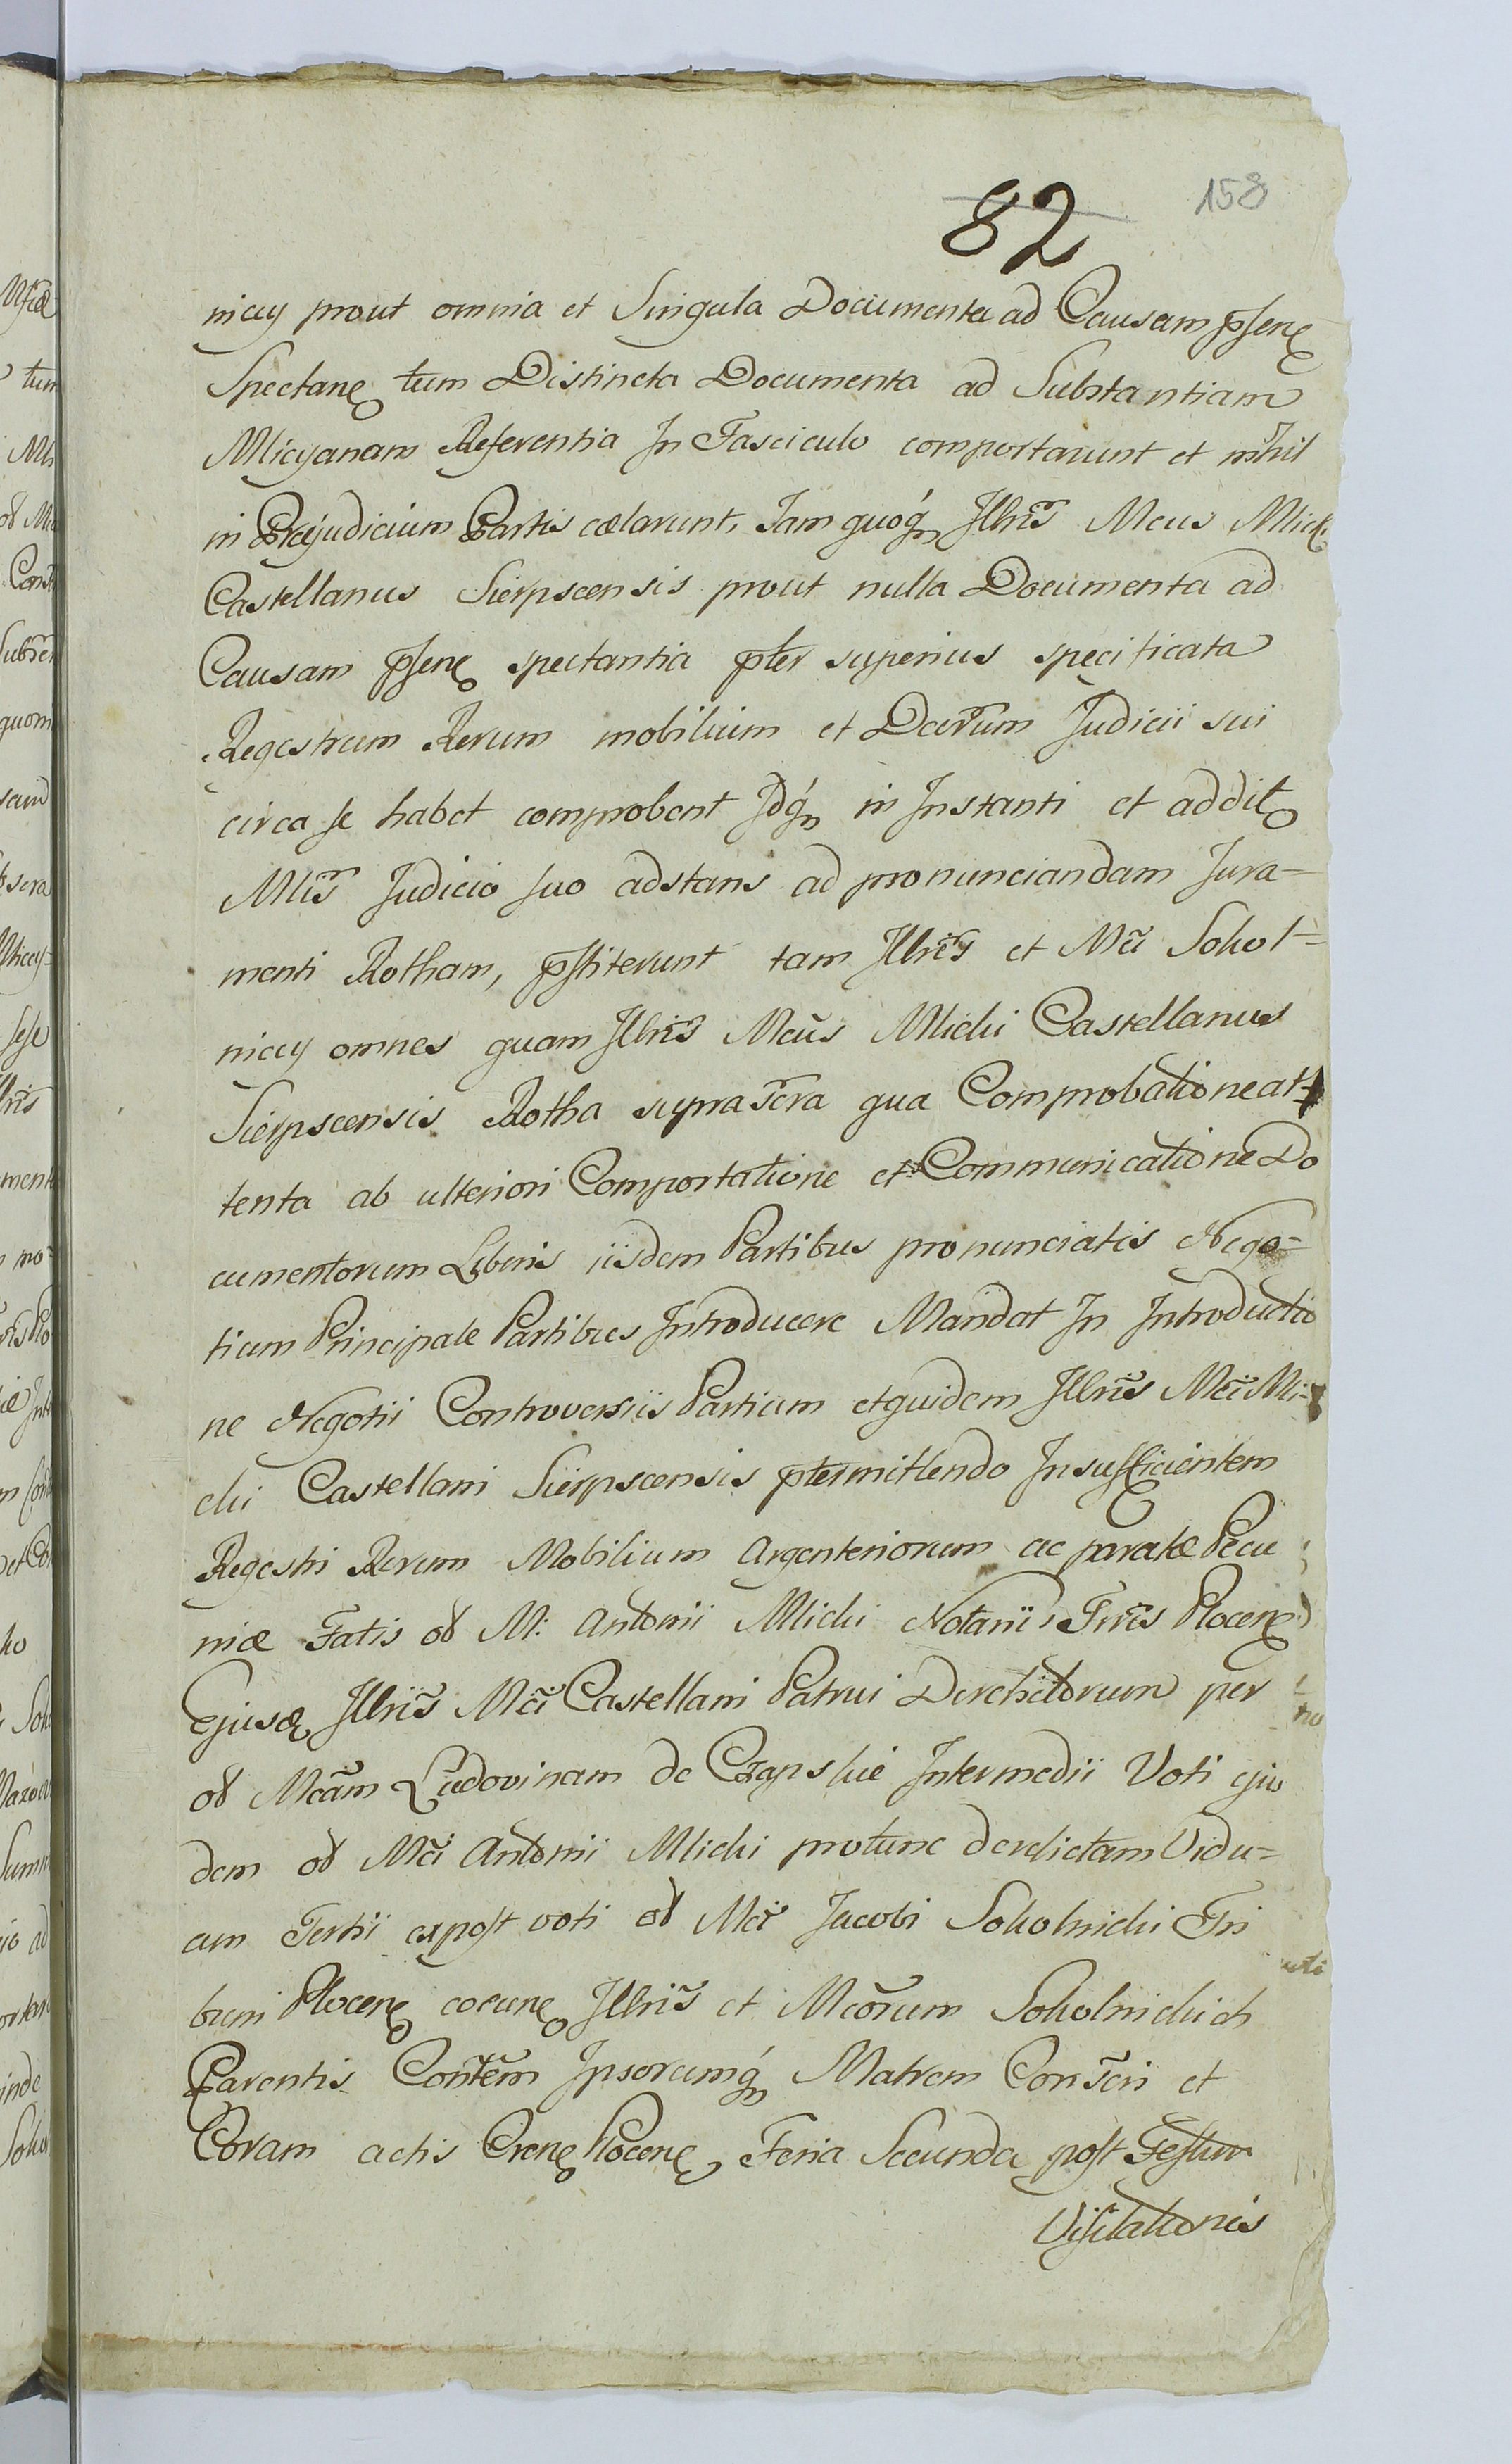 82 158
niccy prout omnia et Singula Documenta ad Causam pſen
Spectan tum Distincta Documenta ad Substantiam
Mlicyanam Referentia In Fasciculo comportarunt et nihil
in Præjudicium Partis cælarunt, Iam quoq Illris Mcus Mlicki
Castellanus Sierpscensis prout nulla Documenta ad
Causam pſen spectantia pter superius specificata
Regestrum Rerum mobilium et Decrum Judicii sui
circa se habet comprobent Idq in Instanti et addit
Mlis Judicio suo adstans ad pronunciandam Jura=
menti Rotham, pſtiterunt tam Illres et Mci Sokol=
niccy omnes quam Illris Mcus Mlicki Castellanus
Sierpscensis Rotha suprascra qua Comprobatione at=
tenta ab ulteriori Comportatione et Communicatione Do
cumentorum Liberis iisdem Partibus pronunciatis Nego=
tium Principale Partibus Introducere Mandat In Introductio
ne Negotii Controversiis Partium et quidem Illris Mci Mli=
cki Castellani Sierpscensis ptermittendo Insufficientem
Regestri Rerum Mobilium Argenteriorum ac paratæ Pecu
niæ Fatis od M: Antonii Mlicki Notarii Trris Plocen
Ejusd Illris Mci Castellani Patrui Derelictorum per
od Mcam Ludovinam de Czapskie Intermedii Voti eju
dem od Mci Antonii Mlicki protunc derelictam Vidu=
am Tertii expost voti od Mci Jacobi Sokolnicki Tri
buni Plocen cocun Illris et Mcorum Sokolnickich
Parentis Contem Ipsorumq Matrem Conscri et
Coram actis Cren Plocen Feria Secunda post Festum
Visitationis